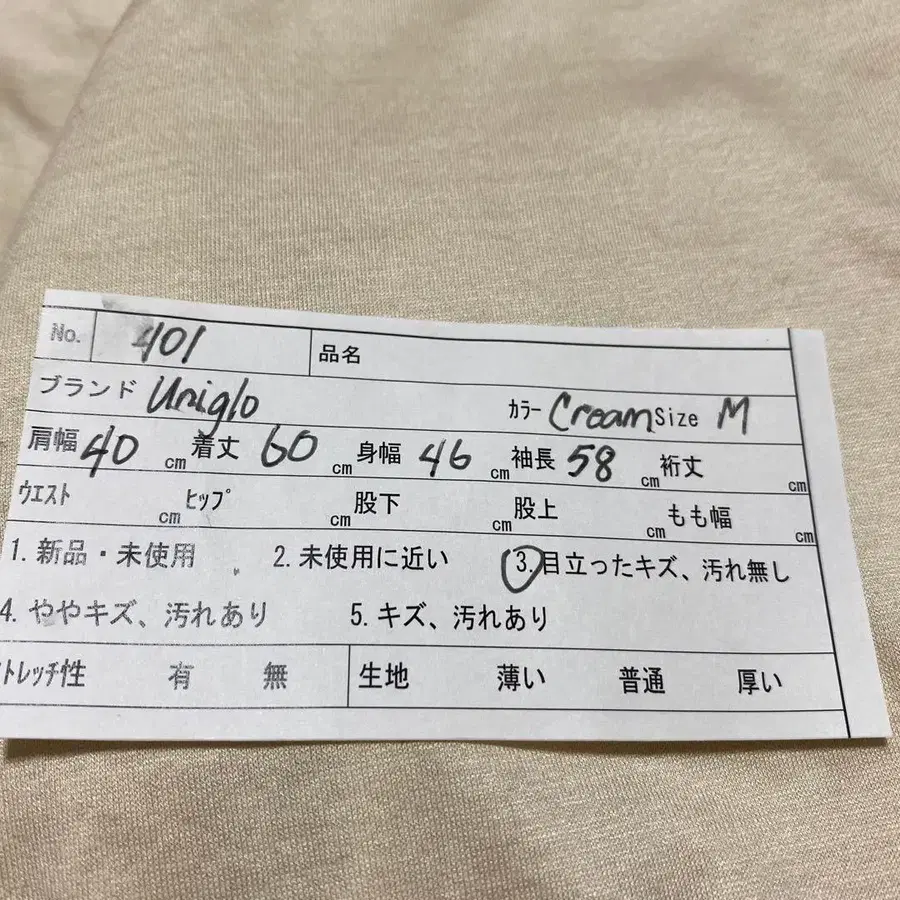 No. 401 品名
ブランド Uniglo カラー Cream Size M
肩幅 40 cm 着丈 60 cm 身幅 46 cm 袖長 58 cm 裄丈 cm
ウエスト cm ヒップ cm 股下 cm 股上 cm もも幅 cm
1. 新品・未使用 2. 未使用に近い 3. 目立ったキズ、汚れ無し
4. ややキズ、汚れあり 5. キズ、汚れあり
トレッチ性 有 無 生地 薄い 普通 厚い